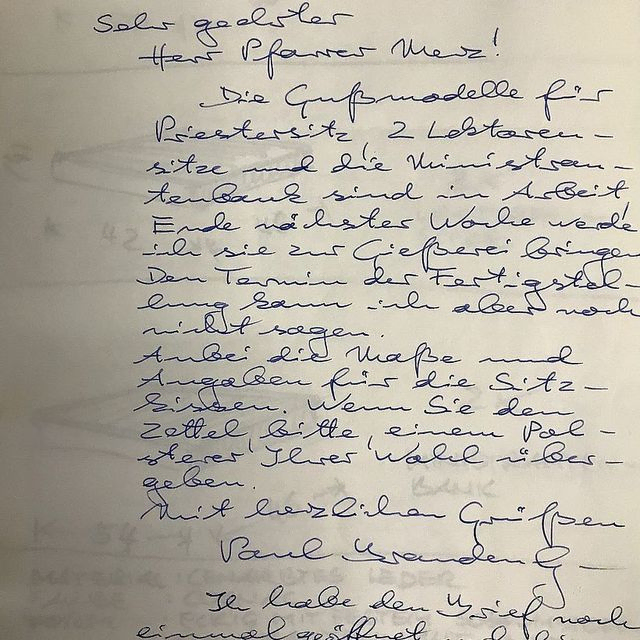 Sehr geehrter
Herr Pfarrer Merz!
Die Gußmodelle für
Priestersitz, 2 Lektoren-
sitze und die Ministran-
tenbank sind in Arbeit,
Ende nächster Woche werde
ich sie zur Gießerei bringen
Den Termin der Fertigstel-
lung kann ich aber noch
nicht sagen.
Anbei die Maße und
Angaben für die Sitz-
kissen. Wenn Sie den
Zettel, bitte, einem Pol-
sterer Ihrer Wahl über-
geben.
Mit herzlichen Grüßen
Paul
Ich habe den Brief noch
einmal geöffnet
BANK